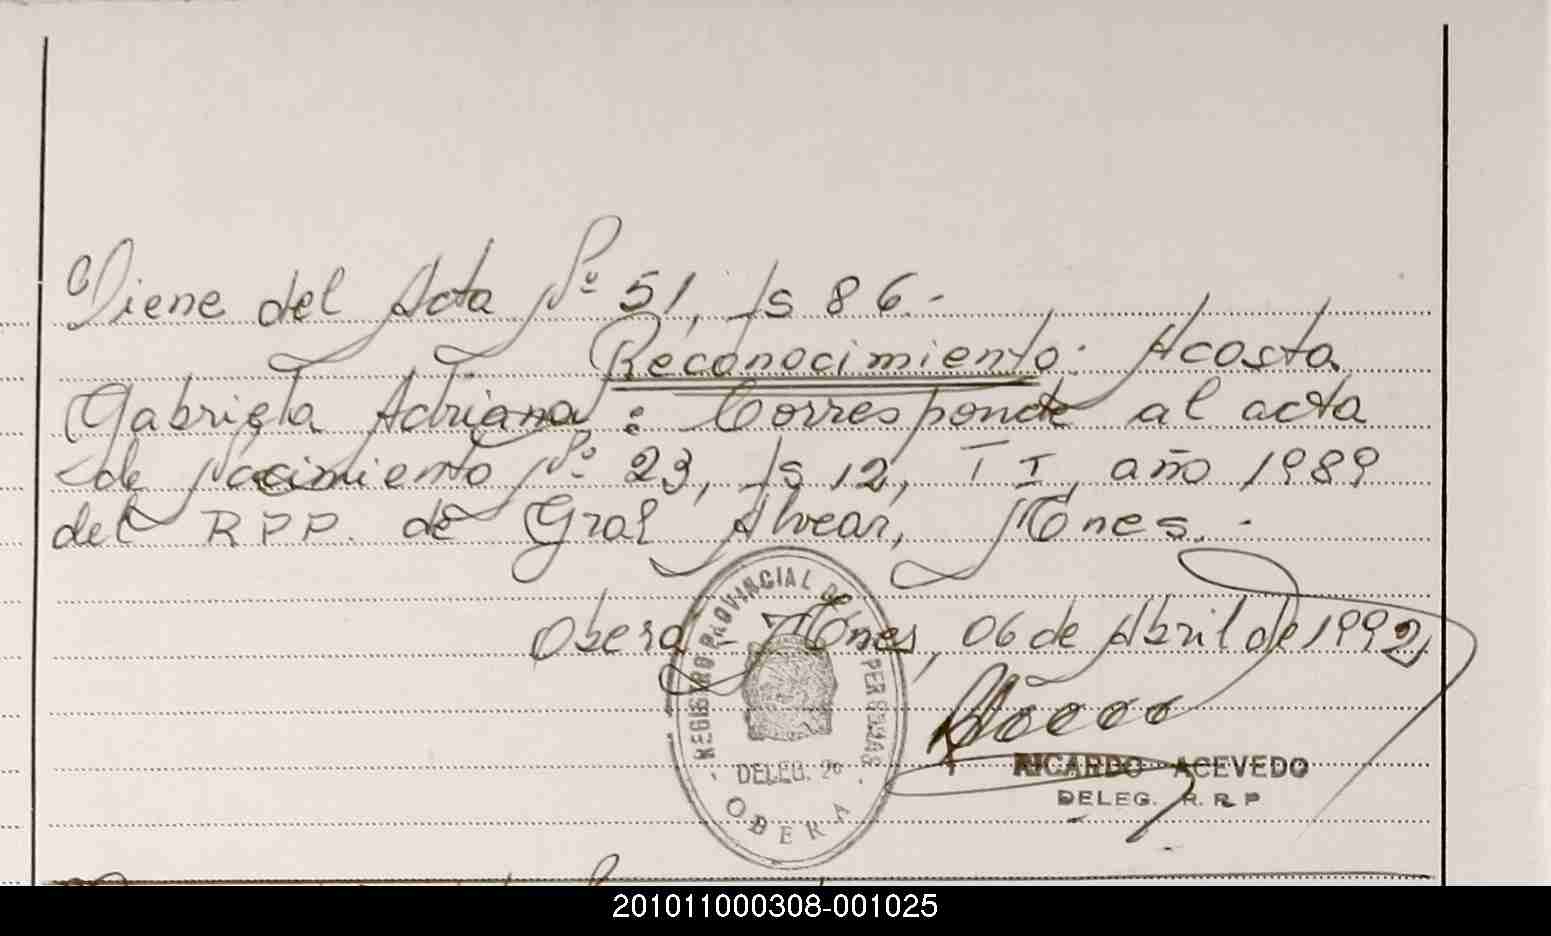 Viene del Acta Nº 51, fs 86.-
Reconocimiento: Acosta
Gabriela Adriana: Corresponde al acta
de Nacimiento Nº 23, fs 12, T I, año 1989
del RPP. de Gral Alvear, Mnes.-
Obera, Mnes, 06 de Abril de 1992
REGISTRO PROVINCIAL DE LAS PERSONAS
DELEG. 2º
OBERA
RICARDO ACEVEDO
DELEG. R. R. P
201011000308-001025